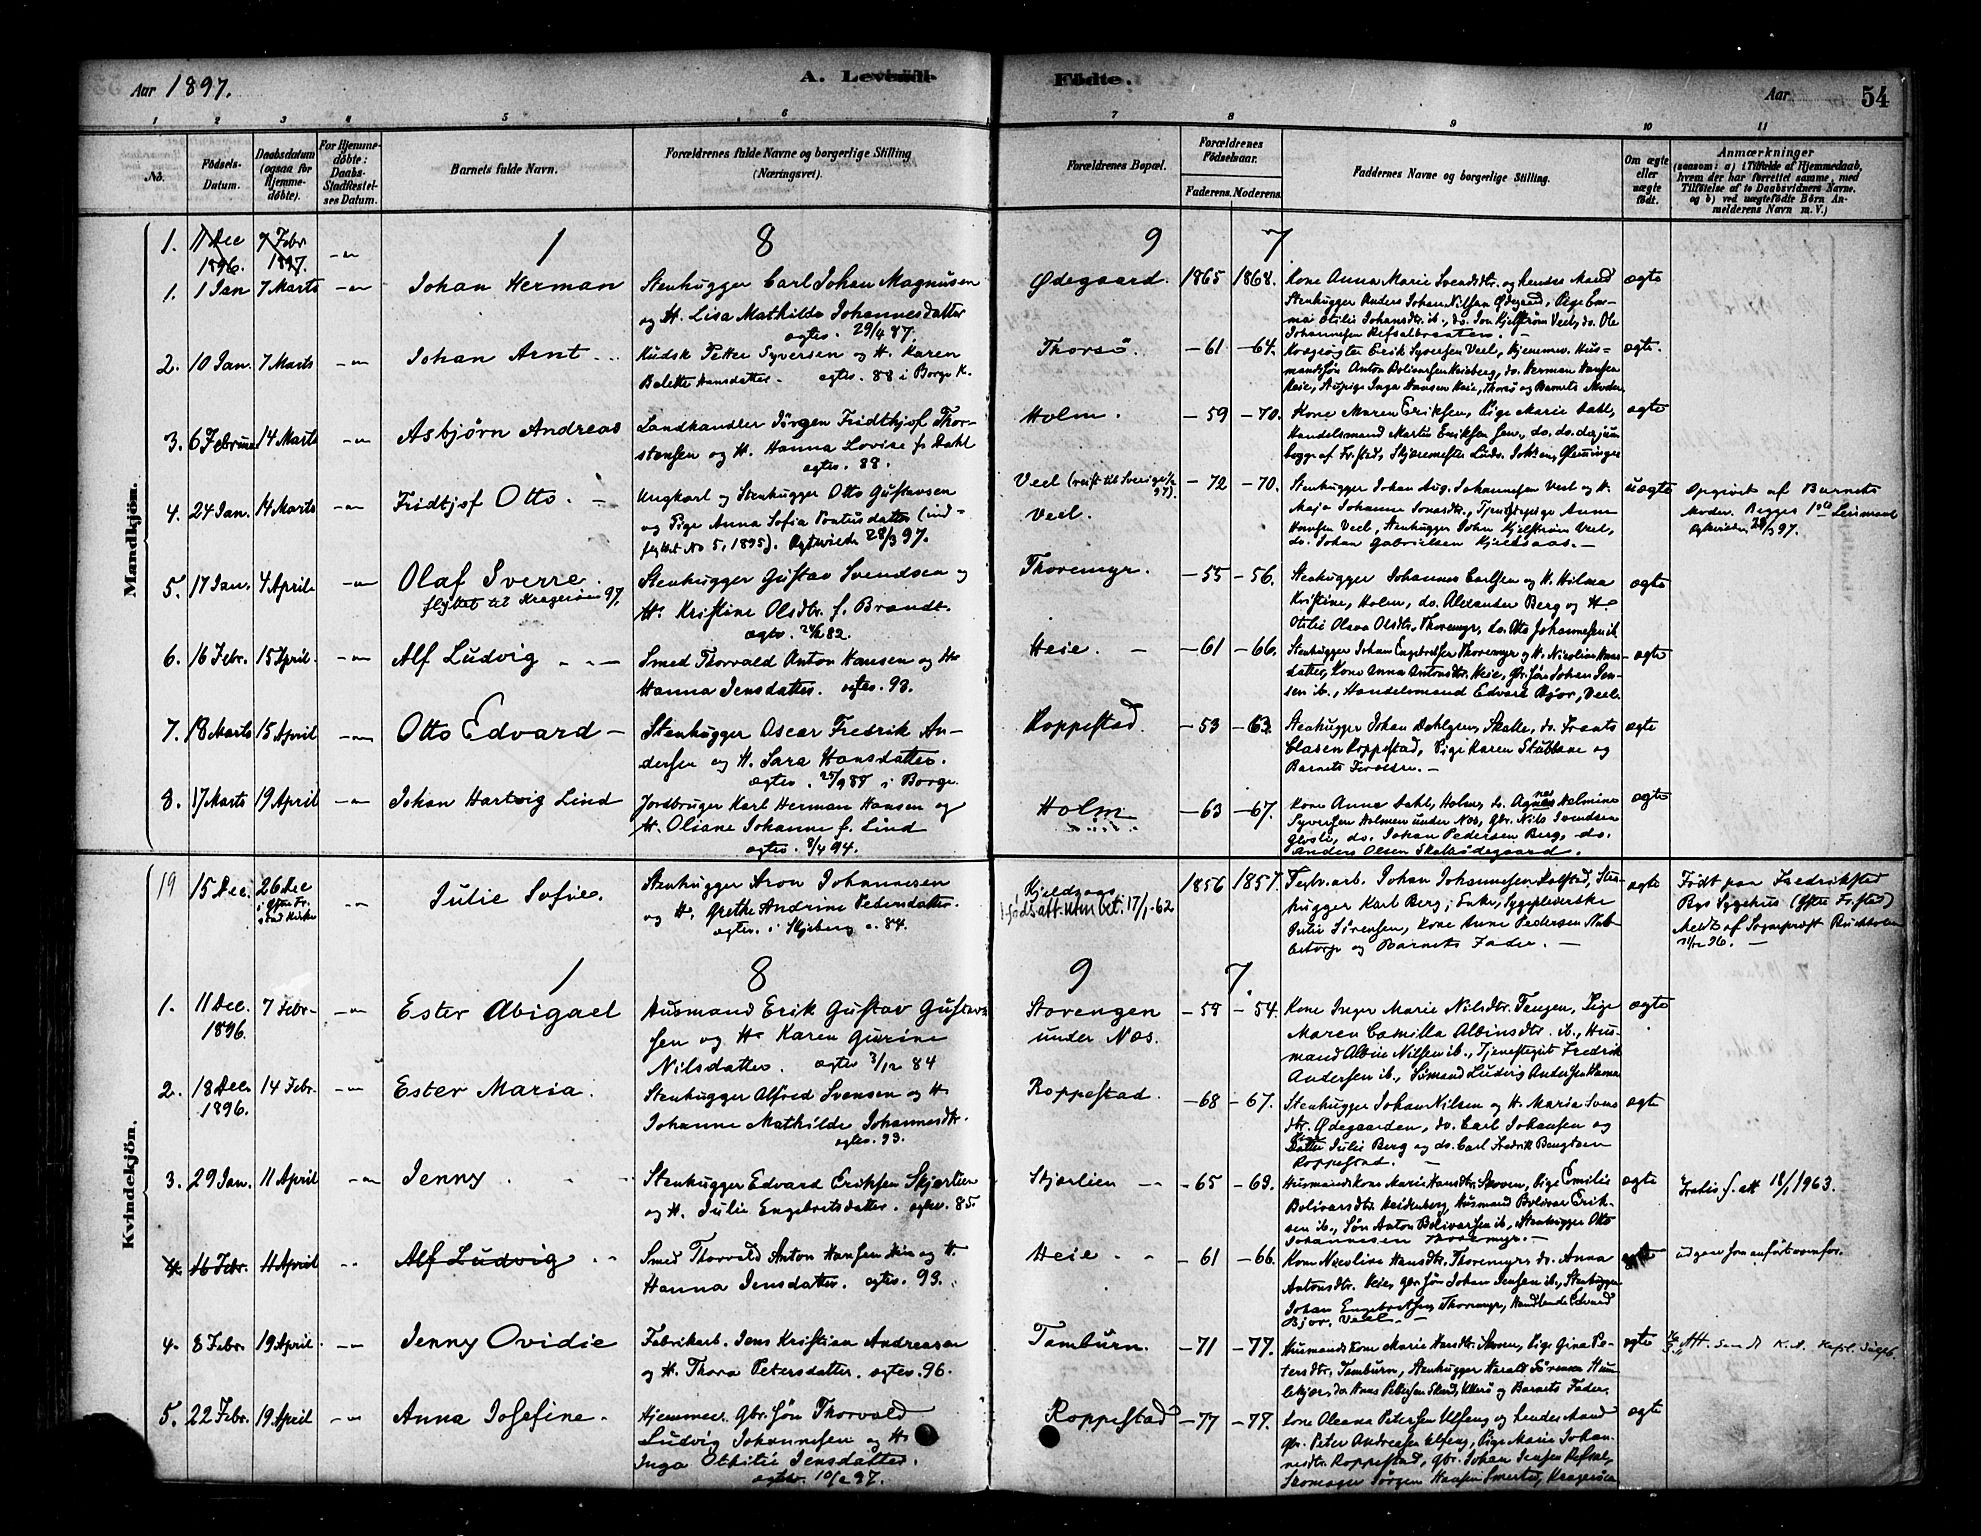 Aar 1897.
A. Levende
Fødte.
Aar
54
1 2 3 4 5 6 7 8 9 10 11
No.
Fødsels-Datum.
Daabsdatum (ogsaa for Hjemme-døbte).
For Hjemme-døbte: Daabs-Stadfæstel-ses Datum.
Barnets fulde Navn.
Forældrenes fulde Navne og borgerlige Stilling (Næringsvei).
Forældrenes Bopæl.
Forældrenes Fødselsaar.
Faderens. Moderens.
Faddernes Navne og borgerlige Stilling.
Om ægte eller uægte født.
Anmærkninger
(saasom: a) i Tilfælde af Hjemmedaab, hvem der har forrettet samme, med Tilføielse af to Daabsvidners Navne, og b) ved uægtefødte Børn An-melderens Navn m. V.)
Mandkjøn.
1. 11 Dec 1896. 7 Febr 1897. 1 8 9 7
1. 1 Jan 7 Marts Johan Herman Stenhugger Carl Johan Magnusen
og H. Lisa Mathilde Johannesdatter
Ødegaard. 1865 1868. Kone Anna Marie Svendsdtr. og hendes Mand
Stenhugger Anders Johan Nilsen Ødegaard, Pige
ægte
2. 10 Jan. 7 Marts Johan Arnt Kudsk Petter Syversen og H. Karen
Bolette Hansdatter. ægtev. 88 i Borge K.
Thorsø. -61 -64. Erik Syversen Veel, Hjemmev. Hus-
mandssøn Anton Bolivarsen Heieberg, do. Herman Hansen
Heie, Inga Hansen Heie, Thorsø og Barnets Moder
ægte.
3. 6 Februar 14 Marts Asbjørn Andreas Landhandler Jørgen Fridthjof Thor-
stensen og H. Hanna Lovise f. Dahl
ægtev. 88.
Holm. -59 -70. Kone Maren Eriksen, Pige Marie Dahl,
Handelsmand Martin Eriksen sen., do. do. do. jun
begge af Fr.sted,
ægte
4. 24 Jan. 14 Marts Fridtjof Otto. Ungkarl og Stenhugger Otto Gustavsen
og Pige Anna Sofia Pontusdatter (ind-
flyttet No 5, 1895).
Veel (reist til Sverige
Veel. -72 -70. Stenhugger Johan Aug. Johannesen Veel og H.
Maja Johanne Tjenestepige Anne
Hansen Veel, Stenhugger John Kjelstrøm Veel,
do. Johan Gabrielsen Kjeldsaas.
uægte Opgivet af Barnets
Moder. Begges 1ste Leiermaal
5. 17 Jan. 4 April Olaf Sverre.
flyttet til Kragerøen 97.
Stenhugger Gustav Svendsen og
H. Kristine Olsdtr. f. Brandt.
Thoremyr. -55 -56. Stenhugger Johannes Carlsen og H. Hilma
Kristine, Holm, do. Alexander Berg og H.
Otilie Olava Olsdtr. Thoremyr, do. Otto Johannesen ib
ægte
6. 16 Febr. 15 April. Alf Ludvig Smed Thorvald Anton Hansen og H.
Hanna Jensdatter. ægtev. 93.
Heie. -61 -66. Stenhugger Johan Engebretsen Thoremyr og H. Nicoline Hans-
datter, Kone Anna Antonsdtr. Heie, Gbr.søn Johan Jen-
sen ib., Handelsmand Edvard Bjor, Veel.
ægte
7. 18 Marts 15 April Otto Edvard Stenhugger Oscar Fredrik An-
dersen og H. Sara Hansdatter.
i Borge.
Roppestad. -53 -63. Stenhugger Johan Dahlgren, Skalle, do. Frants
Clasen Roppestad, Pige Karen Stubbane og
Barnets Forældre.
ægte
8. 17 Marts 19 April Johan Hartvig Lind Jordbruger Karl Herman Hansen og
H. Oliane Johanne f. Lind
ægtev. 8/4 94.
Holm -63 -67. Kone Anna Dahl, Holm, do. Agnes Helmine
Syversen Holmen under Næs, gbr. Nils Svendsen
do. Johan Pedersen Berg, do.
Anders Olsen Skaleødegaard.
ægte
19 15 Dec. 26 Dec i Østre Fr.stad Kirke Julie Sofie. Stenhugger Aron Johannesen
og H. Grethe Andrine Pedersdatter.
ægtev. i Skjeberg c. 84.
Kjeldsaas
fødsatt. utn bet. 17/1-62
1856 1857. Johan Johannesen Kalstad, Sten-
hugger Karl Berg, Sygepleierske
Julie Sørensen, Kone Anne Pedersen
og Barnets Fader.
ægte Født paa Fredrikstad
Bys Sygehus (Østre Fr.sted)
Meldt af Sogneprest
Kvindekjøn.
1 8 9 7.
1. 11 Dec. 1896. 7 Febr. Ester Abigael Husmand Erik Gustav Gustav-
sen og H. Karen Gurine
Nilsdatter. ægtev 3/12 84
Storengen
under Næs. -59 -54. Kone Inger Marie Nilsdtr. Tangen, Pige
Maren Camilla Albinsdtr. ib., Hus-
mand Albin Nilsen ib., Tjenestegut Fredrik
Andersen ib., Sømand Ludvig Andersen
ægte
2. 18 Dec. 1896. 14 Febr. Ester Maria. Stenhugger Alfred Svensen og H.
Johanne Mathilde Johannesdtr.
ægtev. 93.
Roppestad. -68 -67. Stenhugger Johan Nilsen og H. Maria Svens
dtr. Ødegaarden, do. Carl Johansen og
Datter Julie Berg og do. Carl Fredrik Bengtsen
Roppestad.
ægte
3. 29 Jan. 11 April Jenny. Stenhugger Edvard Eriksen Skjørlien
og H. Julie Engebretsdatter. ægtev. 85.
Skjørlien -65 -69. Husmandskone Marie Hansdtr. Skoven, Pige Emilie
Bolivarsdtr. Heieberg, Husmand Bolivar Erik-
sen ib., Søn Anton Bolivarsen ib., Stenhugger Otto
Johannesen Thoremyr.
ægte Gratis f. att 18/1 1963.
4. 16 Febr. 11 April Alf Ludvig Smed Thorvald Anton Hansen Heie og H.
Hanna Jensdatter. ægtev. 93.
Heie -61 -66. Kone Nicoline Hansdtr. Thoremyr, do. Anna
Antonsdtr. Heie, gbr.søn Johan Jensen ib., Stenhugger
Johan Engebretsen Thoremyr, Handlende Edvard
Bjor, Veel.
ægte udgaar som anført ovenfor.
4. 8 Febr. 19 April. Jenny Ovidie Fabrikarb. Jens Kristian Andreasen
og H. Thora Petersdatter. ægtev. 96.
Tamburn. -71 -77. Husmandskone Marie Hansdtr. Skoven, Pige Gina Pe-
tersdtr. Tamburn, Stenhugger Harald Sørensen Hum-
lekjær, do Hans Pettersen og Barnets Fader.
ægte Att. sendt
5. 22 Febr. 19 April Anna Josefine. Hjemmev. Gbr.søn Thorvald
Ludvig Johannesen og H.
Inga Othilie Jensdatter.
ægtev. 10/2 97.
Roppestad -77 -77. Kone Oleana Petersen Ulfeng og hendes Mand
gbr. Peter Andreasen Ulfeng, Pige Marie Johan-
nesdtr. Roppestad, gbr. Johan Jensen Refsal,
Skomager Jørgen Hansen Smertu, Kragerøen
ægte